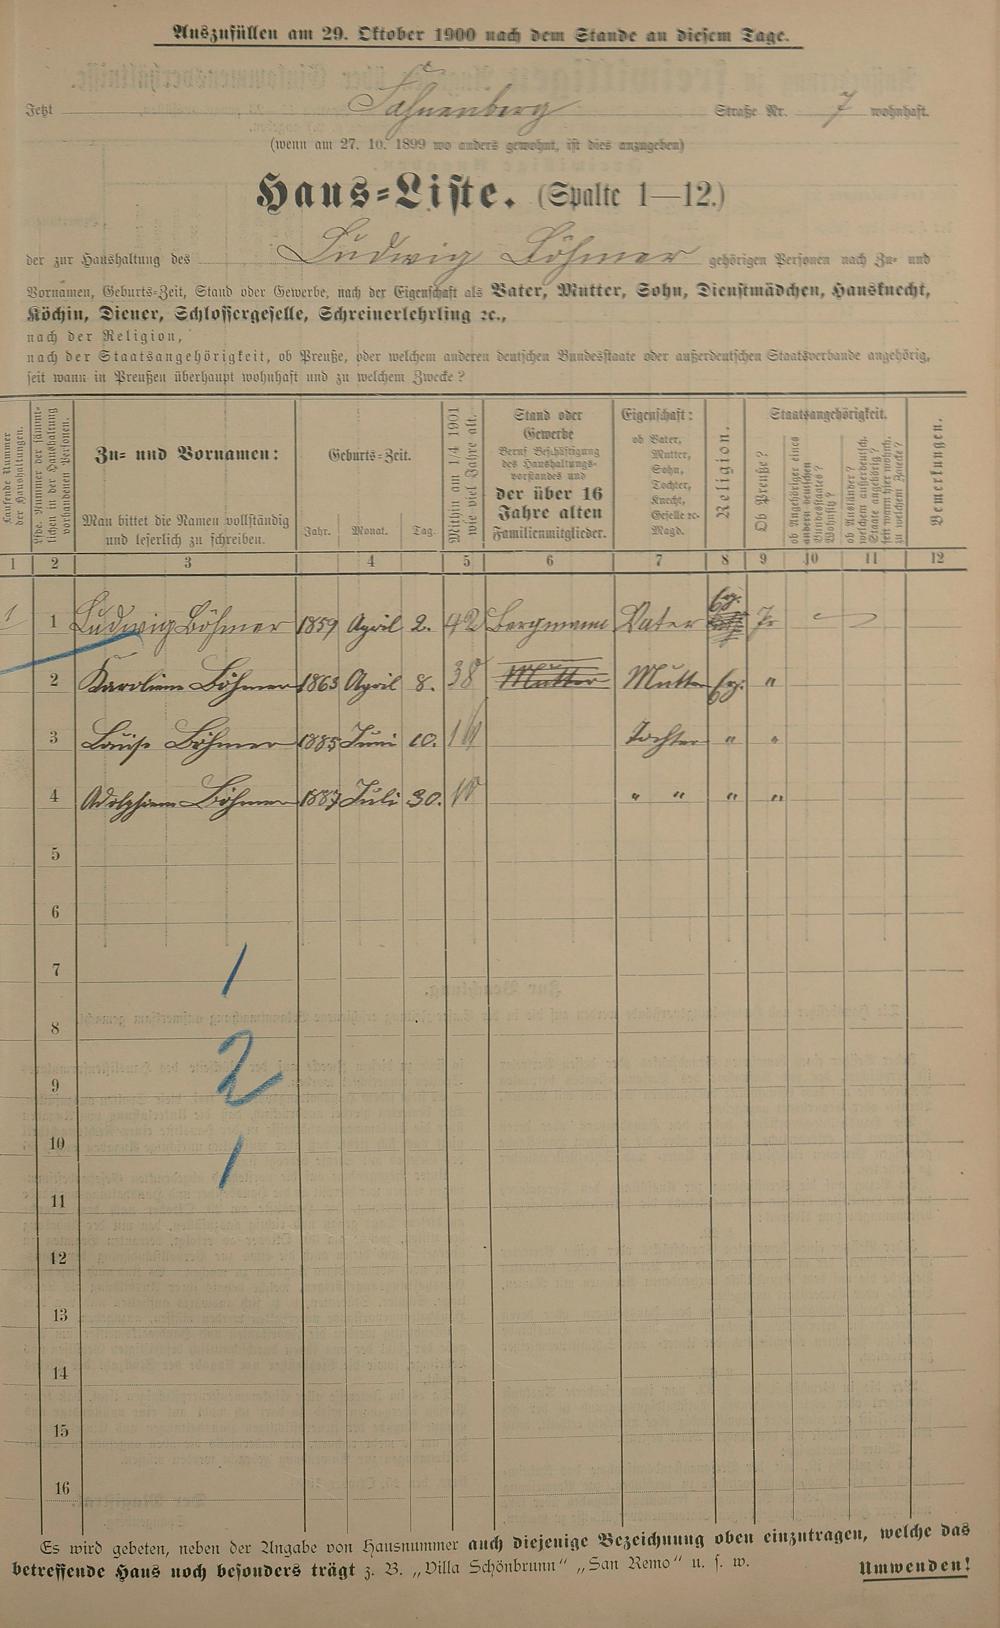 Auszufüllen am 29. Oktober 1900 nach dem Stande an diesem Tage.
Jetzt Straße Nr. 7 wohnhaft.
(wenn am 27. 10. 1899 wo anders gewohnt, ist dies anzugeben)
Haus=Liste. (Spalte 1—12.)
der zur Haushaltung des Ludwig Böhmer gehörigen Personen nach Zu= und
Vornamen, Geburts=Zeit, Stand oder Gewerbe, nach der Eigenschaft als Vater, Mutter, Sohn, Dienstmädchen, Hausknecht,
Köchin, Diener, Schlossergeselle, Schreinerlehrling ꝛc.,
nach der Religion,
nach der Staatsangehörigkeit, ob Preuße, oder welchem anderen deutschen Bundesstaate oder außerdeutschen Staatsverbande angehörig,
seit wann in Preußen überhaupt wohnhaft und zu welchem Zwecke?
Laufende Nummer der Haushaltungen.
Lfde. Nummer der sämmtlichen in der Haushaltung vorhandenen Personen.
Zu= und Vornamen:
Man bittet die Namen vollständig
und leserlich zu schreiben.
Geburts=Zeit.
Jahr. Monat. Tag.
Mithin am 1/4 1901
wie viel Jahre alt.
Stand oder
Gewerbe
Beruf Beschäftigung
des Haushaltungs=
vorstandes und
der über 16
Jahre alten
Familienmitglieder.
Eigenschaft:
ob Vater,
Mutter,
Sohn,
Tochter,
Knecht,
Geselle ꝛc.
Magd.
Religion.
Staatsangehörigkeit.
Ob Preuße?
ob Angehöriger eines
andern deutschen
Bundesstaates?
Wohnsitz?
ob Ausländer?
welchem außerdeutsch.
Staate angehörig?
seit wann hier wohnh.
zu welchem Zwecke?
Bemerkungen.
1 2 3 4 5 6 7 8 9 10 11 12
1 1 Ludwig Böhmer 1859 April 2. 42 Bergmann Vater Ev. Pr
2 Karoline Böhmer 1863 April 8. 38 Mutter Mutter Ev. "
3 Louise Böhmer 1885 Juni 10. Tochter " "
4 Böhmer 1887 Juli 30. " " " "
5
6
7
1
8
2
9
10
1
11
12
13
14
15
16
Es wird gebeten, neben der Angabe von Hausnummer auch diejenige Bezeichnung oben einzutragen, welche das
betreffende Haus noch besonders trägt z. B. „Villa Schönbrunn“ „San Remo“ u. s. w. Umwenden!